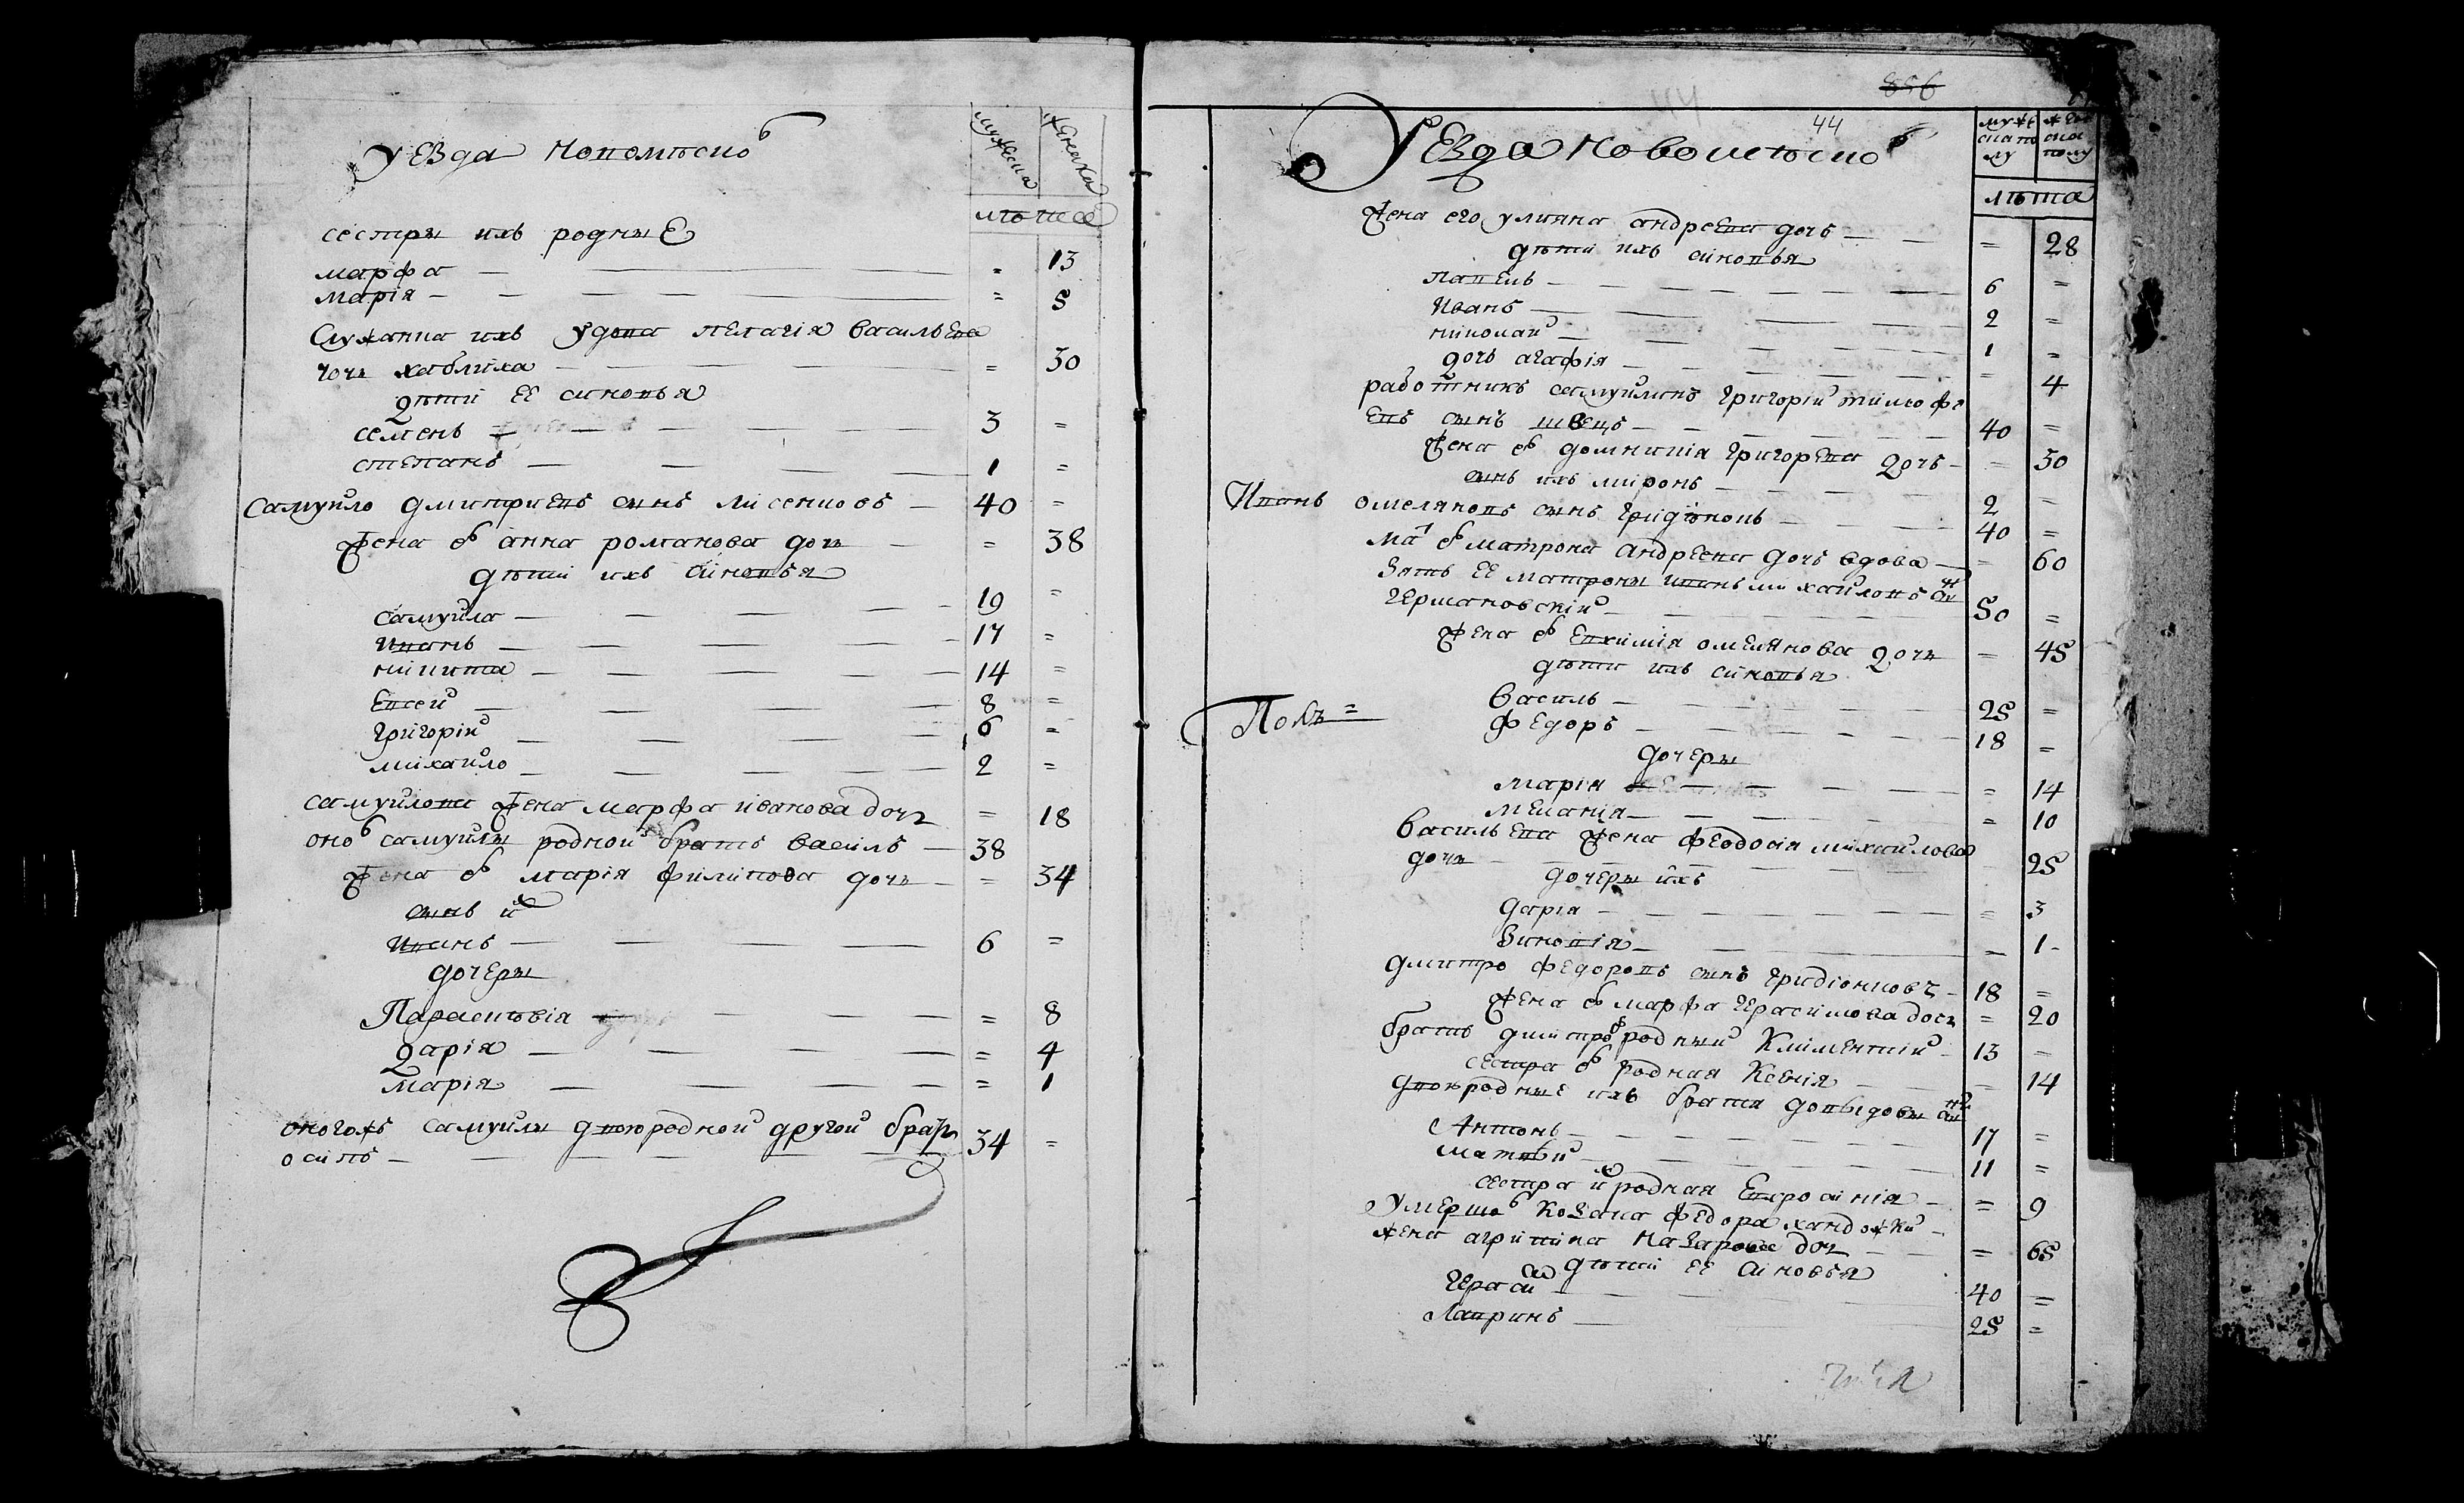 Уезда Новомѣско[г]
мужеска
женска
лѣта
сестры ихъ родные
марфа — = 13
марія — = 5
Служанка ихъ удова пелагія васильева
дочъ хаблиха — = 30
дѣти ее синовья
семенъ — 3 =
степанъ — 1 =
Самуйло дмитриевъ сынъ лисенковъ — 40 =
Жена ег анна романова дочъ — = 38
дѣти ихъ синовья
самуйла — 19 =
иванъ — 17 =
никита — 14 =
Евсей — 8 =
григорій — 6 =
михайло — 2 =
самуйлова жена марфа иванова дочъ = 18
оног самуйлы родной братъ василь — 38
Жена ег марія филипова дочъ — = 34
сынъ их
иванъ — 6 =
дочеры
Параскѣвія — = 8
дарія — = 4
марія — = 1
оногожъ самуйлы двоюродной другой братъ
осипъ — 34 =
856
44
44
Уезда Новомѣско[г]
муже скапо лу
жен ска полу
лѣта
Жена его улияна андреева дочь — = 28
дѣти ихъ синовья
павелъ — 6 =
Иванъ — 2 =
николай — 1 =
дочь агафія — = 4
работникъ самуйлинъ григорій тимофе
евъ сынъ швецъ — 40 =
Жена ег домникія григорева дочь — = 30
сынъ ихъ миронъ — 2 =
Иванъ омеляновъ сынъ гридѣновъ — 40 =
мат ег матрона андреева дочъ вдова — = 60
Зять ее матроны иванъ михайловъ сын
германовскій — 50 =
Жена ег Евхимія омелянова дочъ — = 45
дѣти ихъ синовья
Полъ =
василь — 25 =
федоръ — 18 =
дочеры
марія — = 14
меланія — = 10
васильева жена феодосія михайлова
дочъ — 25
дочеры ихъ
дарія — = 3
Зиновія — = 1
дмитро федоровъ сынъ гридіонковъ — 18 =
Жена ег марфа герасимова дочъ = 20
братъ дмитров родный Климентий — 13 =
сестра ег родная Ксенія — = 14
двоюродные ихъ братя довыдовы сыны
Антонъ — 17 =
матвѣй — 11 =
сестра их родная Евфросинія — = 9
умершог козака федора хандожкы
жена агрипина назарова дочъ — = 65
дѣти ее синовья
Герасим — 40 =
Лавринъ — 25 =